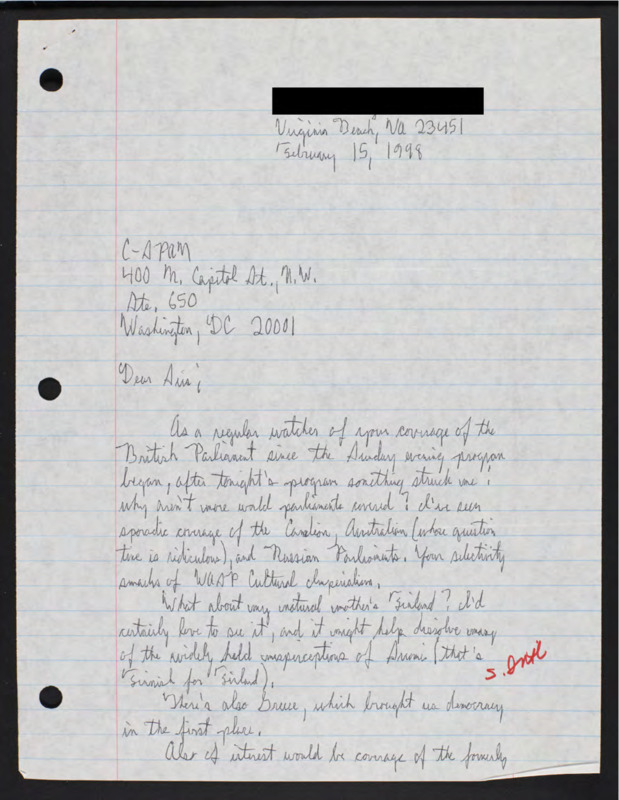 Virginia Beach, VA 23451
February 15, 1998
C-SPAN
400 N. Capitol St., N.W.
Ste. 650
Washington, DC 20001
Dear Sirs;
As a regular watcher of your coverage of the
British Parliament since the Sunday evening program
began, after tonight's program something struck me:
why aren't more world parliaments covered? I've seen
sporadic coverage of the Canadian, Australian (whose question
time is ridiculous), and Russian Parliaments. Your selectivity
smacks of WASP Cultural Imperialism.
What about my natural mother's Finland? I'd
certainly love to see it, and it might help dissolve many
of the widely held misperceptions of Suomi (that's
Finnish for Finland).
S. Intl
There's also Greece, which brought us democracy
in the first place.
Also of interest would be coverage of the formerly